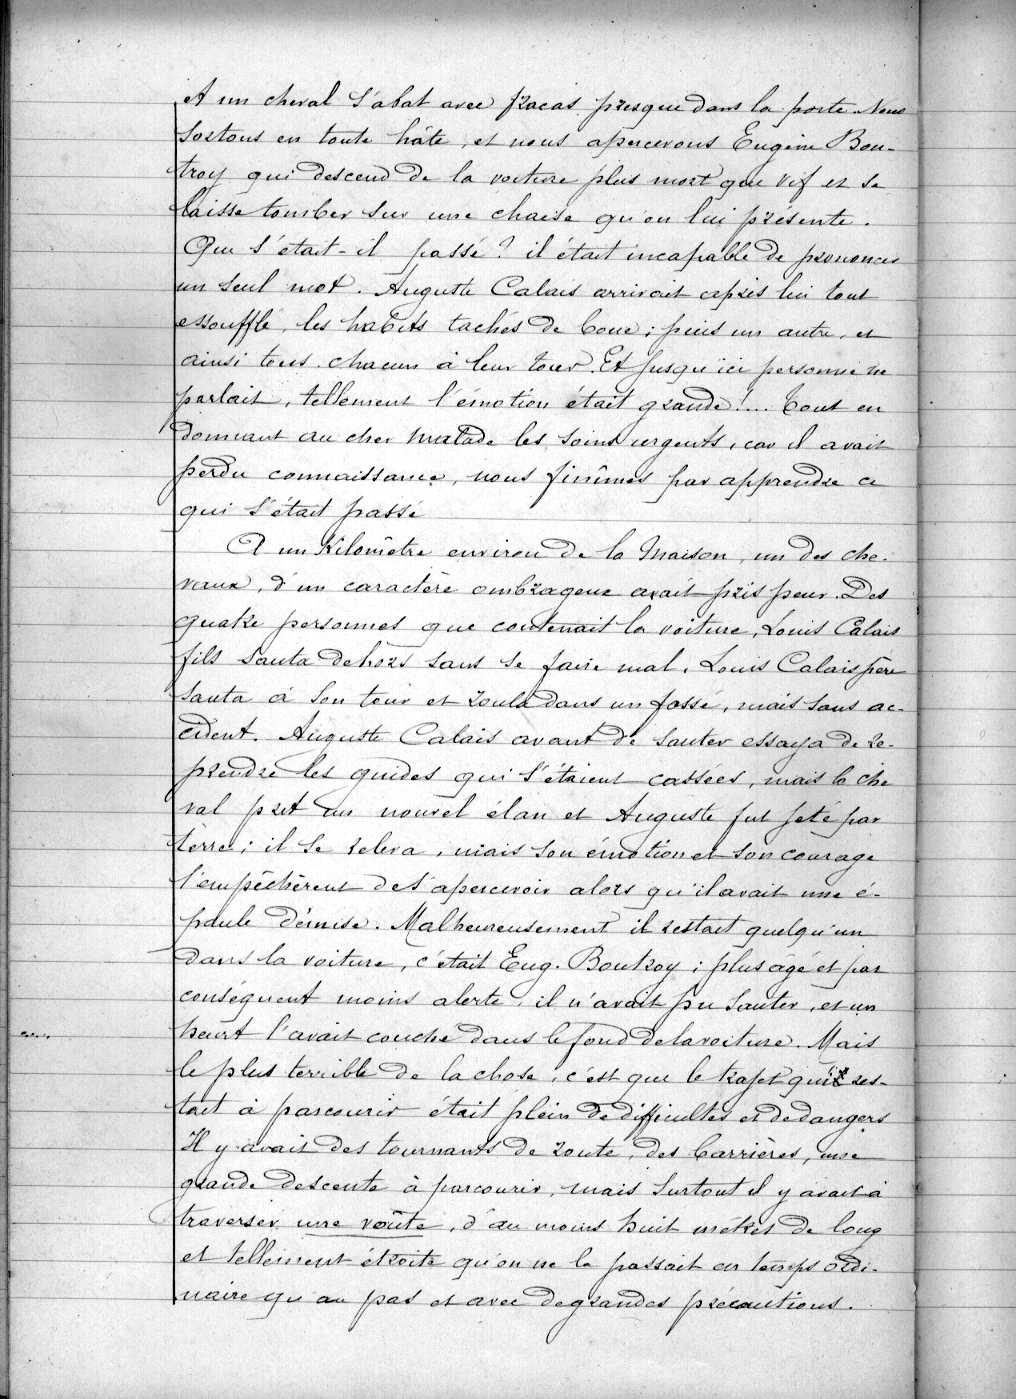 et un cheval s'abat avec fracas presque dans la porte. Nous
sortons en toute hâte, et nous apercevons Eugène Bou-
troy qui descend de la voiture plus mort que vif et se
laisse tomber sur une chaise qu'on lui présente.
Que s'était-il passé? il était incapable de prononcer
un seul mot. Auguste Calais arrivait après lui tout
essoufflé, les habits tachés de boue; puis un autre, et
ainsi tous chacun à leur tour. Et jusqu'ici personne ne
parlait, tellement l'émotion était grande!... Tout en
donnant au cher malade les soins urgents, car il avait
perdu connaissance, nous finîmes par apprendre ce
qui s'était passé
A un Kilomètre environ de la Maison, un des che-
vaux, d'un caractère ombrageux avait pris peur. Des
quatre personnes que contenait la voiture, Louis Calais
fils sauta dehors sans se faire mal, Louis Calais père
sauta à son tour et roula dans un fossé, mais sans ac-
cident. Auguste Calais avant de sauter essaya de re-
prendre les guides qui s'étaient cassées, mais le che
val prit un nouvel élan et Auguste fut jeté par
terre; il se releva, mais son émotion et son courage
l'empêchèrent de s'apercevoir alors qu'il avait une é-
paule démise. Malheureusement il restait quelqu'un
dans la voiture, c'était Eug. Boutroy; plus âgé et par
conséquent moins alerte, il n'avait pu sauter, et un
heurt l'avait couché dans le fond de la voiture. Mais
le plus terrible de la chose, c'est que le trajet qui res-
tait à parcourir était plein de difficultés et de dangers
Il y avait des tournants de route, des barrières, une
grande descente à parcourir, mais surtout il y avait à
traverser une voûte, d'au moins huit mètres de long
et tellement étroite qu'on ne la passait en temps ordi-
naire qu'au pas et avec de grandes précautions.